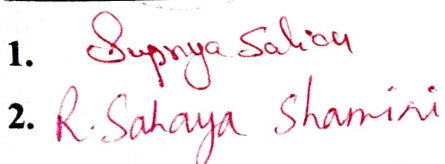 1. Supriya Salian
2. R. Sahaya Shamini